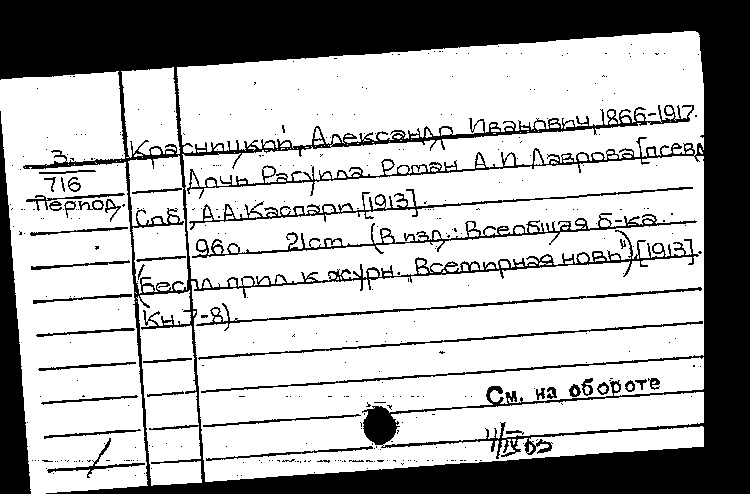 З.
716
Период.
Красницкий, Александр Иванович, 1866-1917.
Дочь Рагуила. Роман А.И. Лаврова [псевд
Спб., А.А.Каспари, [1913].
96с. 21см. (В изд.: Всеобщая б-ка.
(Беспл. прил. к журн. "Всемирная новь"), [1913].
Кн. 7-8).
См. на обороте